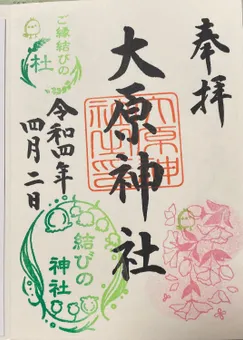 奉拝
大原神社
令和四年
四月二日
ご縁結びの
杜
結びの
神社